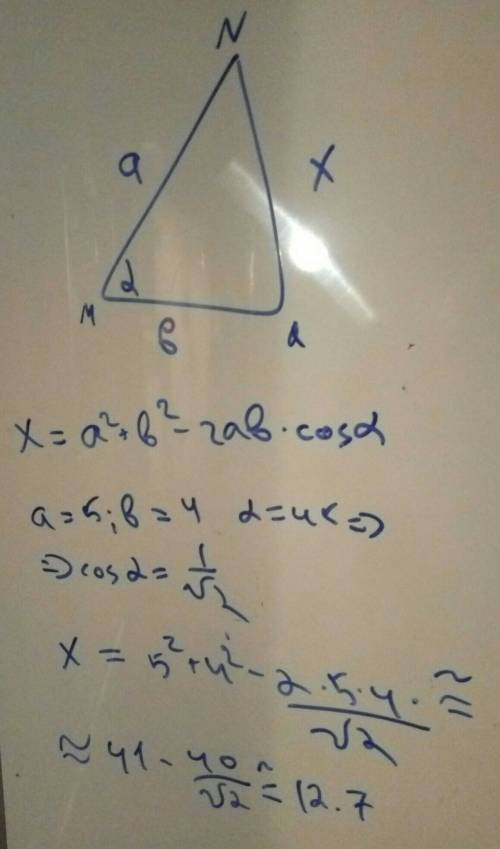 N
a
X
α
M
в
α
X = a² + в² - 2aв · cosα
a = 5; в = 4 α = 45 ⇒
⇒ cosα = 1/√2
X = 5² + 4² - 2 · 5 · 4 · /√2 ≈
≈ 41 - 40/√2 ≈ 12.7